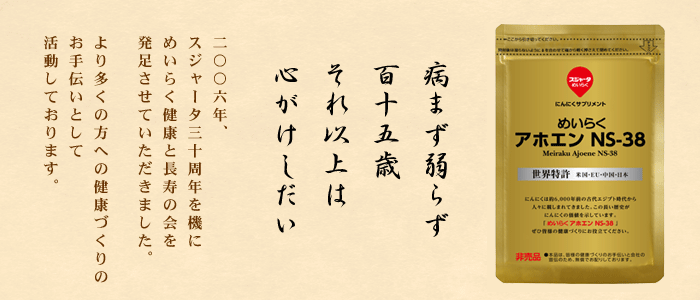 病まず弱らず
百十五歳
それ以上は
心がけしだい
二〇〇六年、
スジャータ三十周年を機に
めいらく健康と長寿の会を
発足させていただきました。
より多くの方への健康づくりの
お手伝いとして
活動しております。
スジャータ
めいらく
にんにくサプリメント
めいらく
アホエン NS-38
Meiraku Ajoene NS-38
世界特許 米国・EU・中国・日本
にんにくは約6,000年前の古代エジプト時代から
人々に親しまれてきました。この長い歴史が
にんにくの価値を示しています。
「めいらくアホエン NS-38」
ぜひ皆様の健康づくりにお役立てください。
非売品